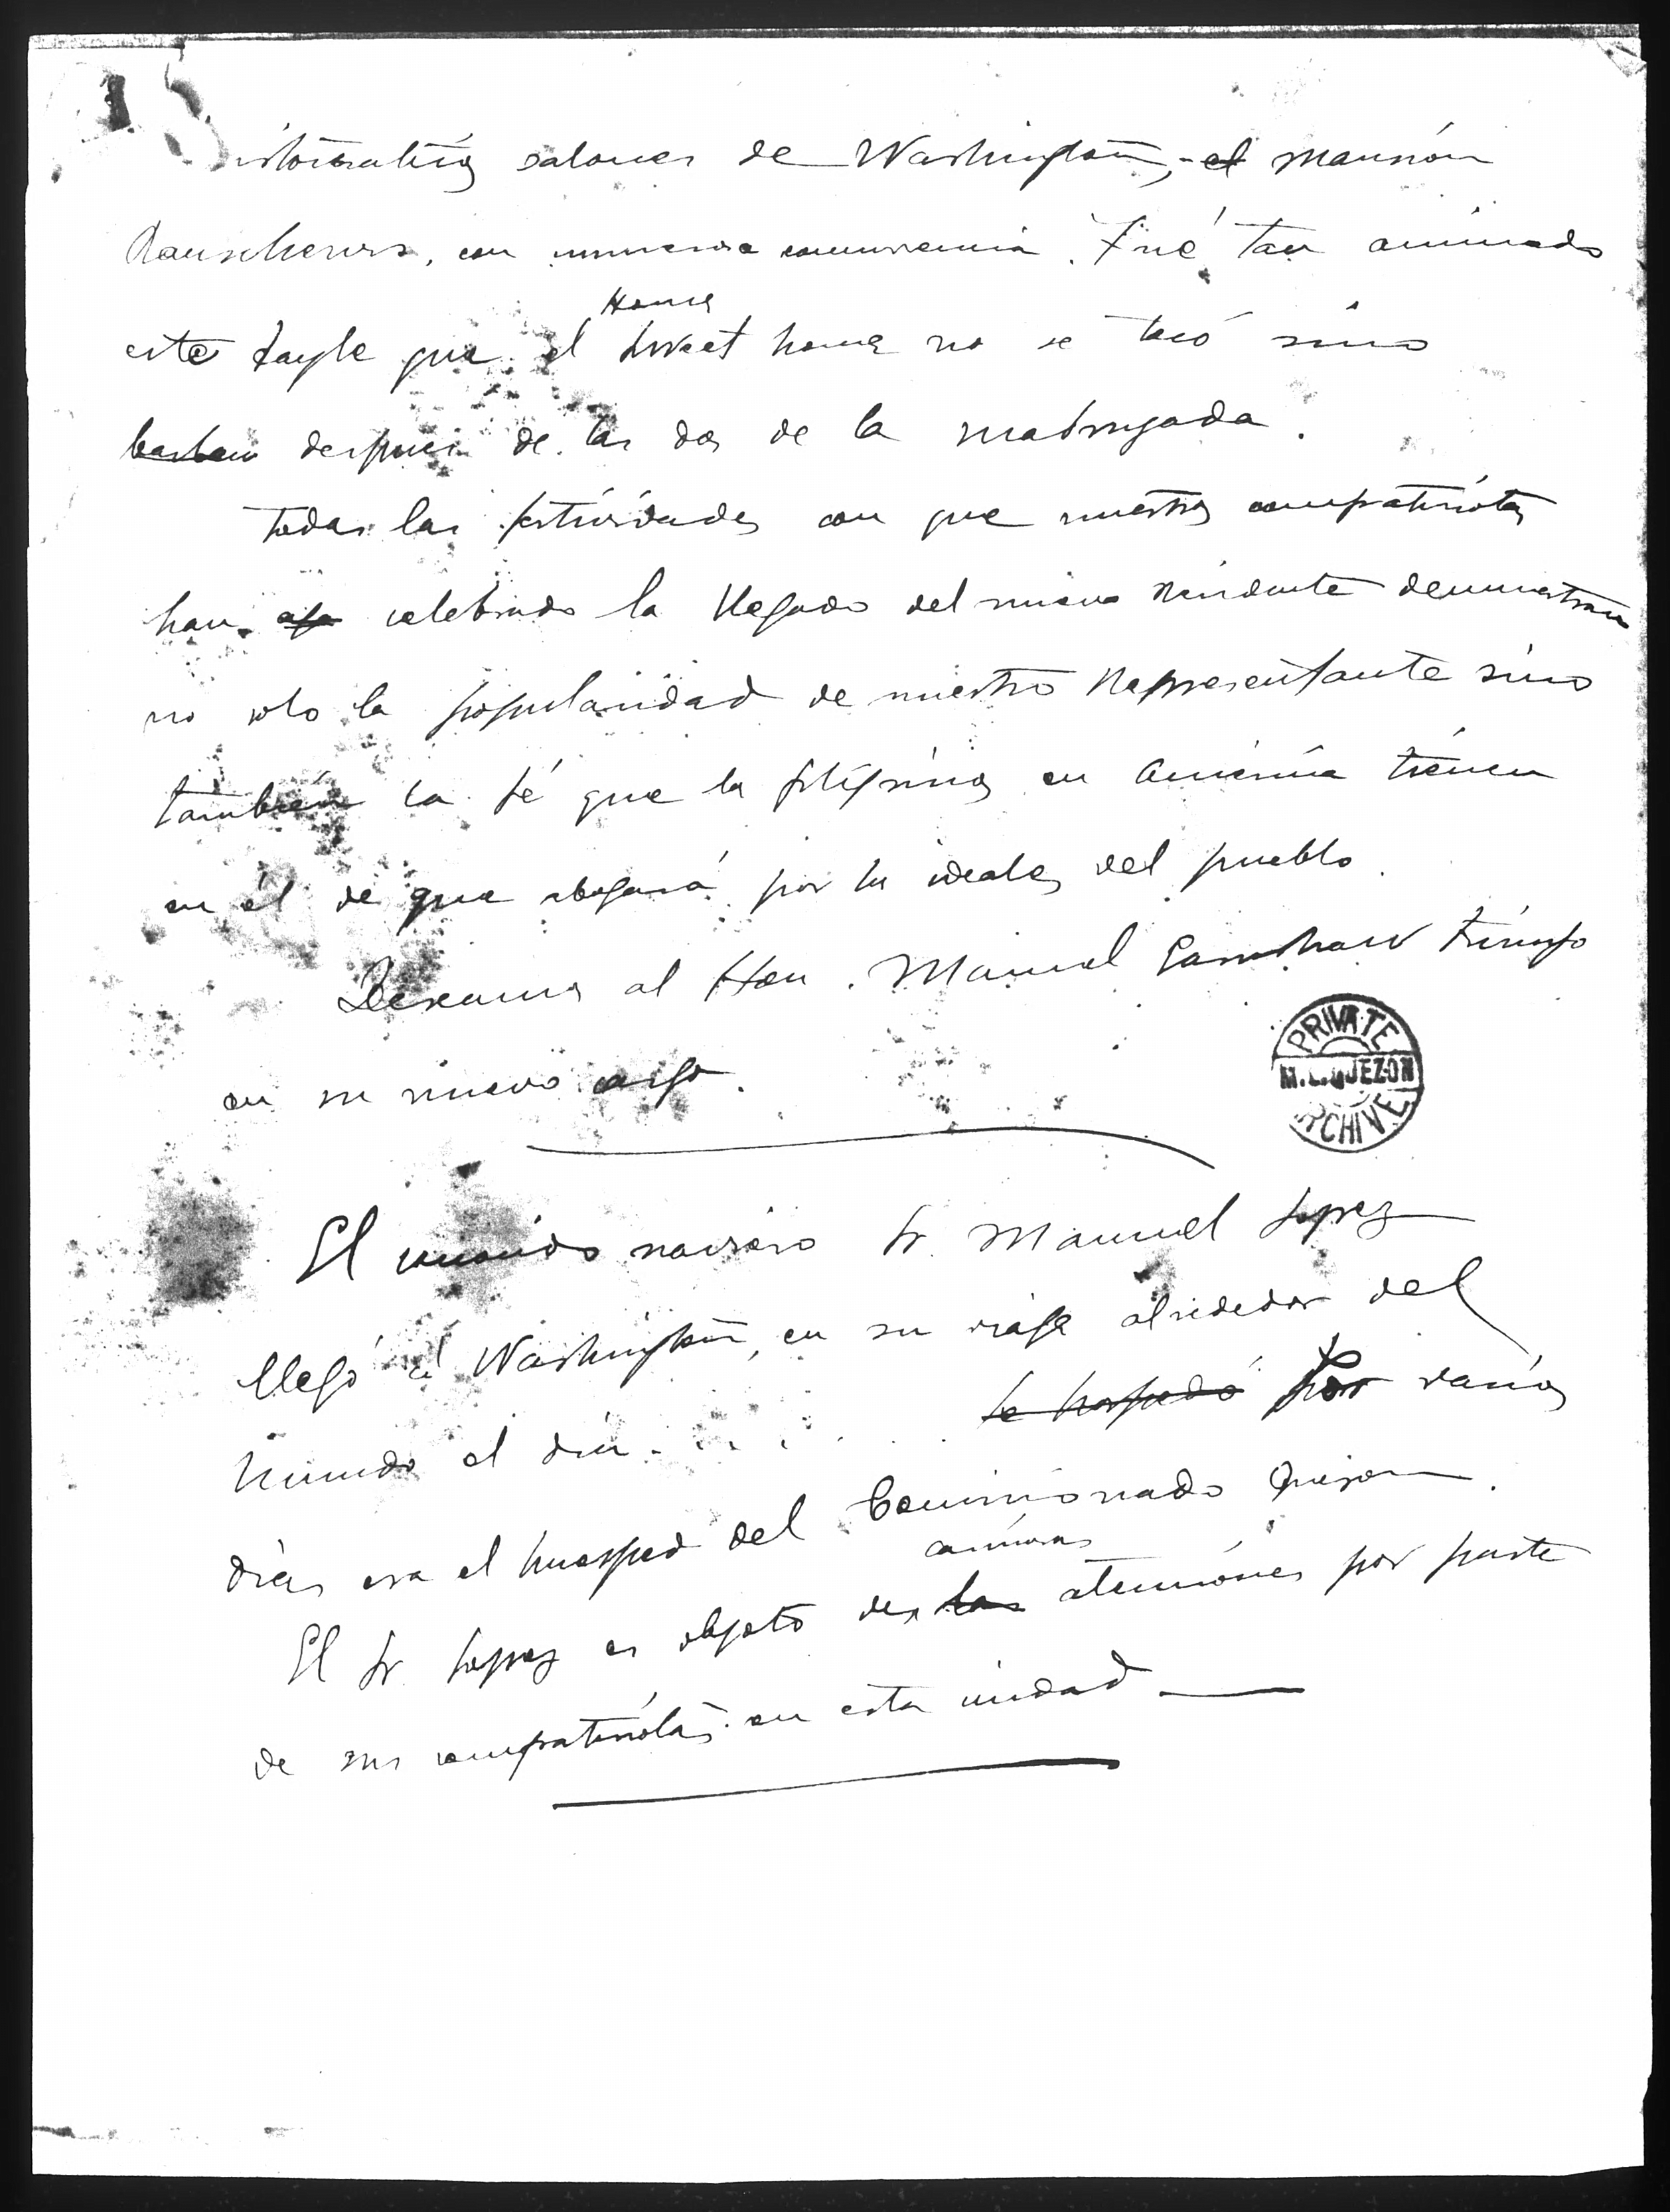 aristocráticos salones de Washington, el mansión
Rauschers, con numerosa concurrencia. Fué tan animado
este bayle que el Home
Sweet home no se tocó sino
despues de las dos de la madrugada.
Todas las festividades con que nuestros compatriotas
han celebrado la llegada del nuevo Residente demuestran
no solo la popularidad de nuestro Representante sino
también la fé que los filipinos en América tienen
en él de que abogará por los ideales del pueblo.
Deseamos al Hon. Manuel Earnshaw triunfo
en su nuevo cargo.
PRIVATE
M.L.QUEZON
ARCHIVE
El conocido naviero Sr. Manuel Lopez
llegó á Washington, en su viaje alrededor del
mundo el dia . . . . . .
se hospedó Por varios
dias era el huesped del Comisionado Quezon.
cariñosas
El Sr. Lopez es objeto de las atenciones por parte
de sus compatriotas en esta ciudad